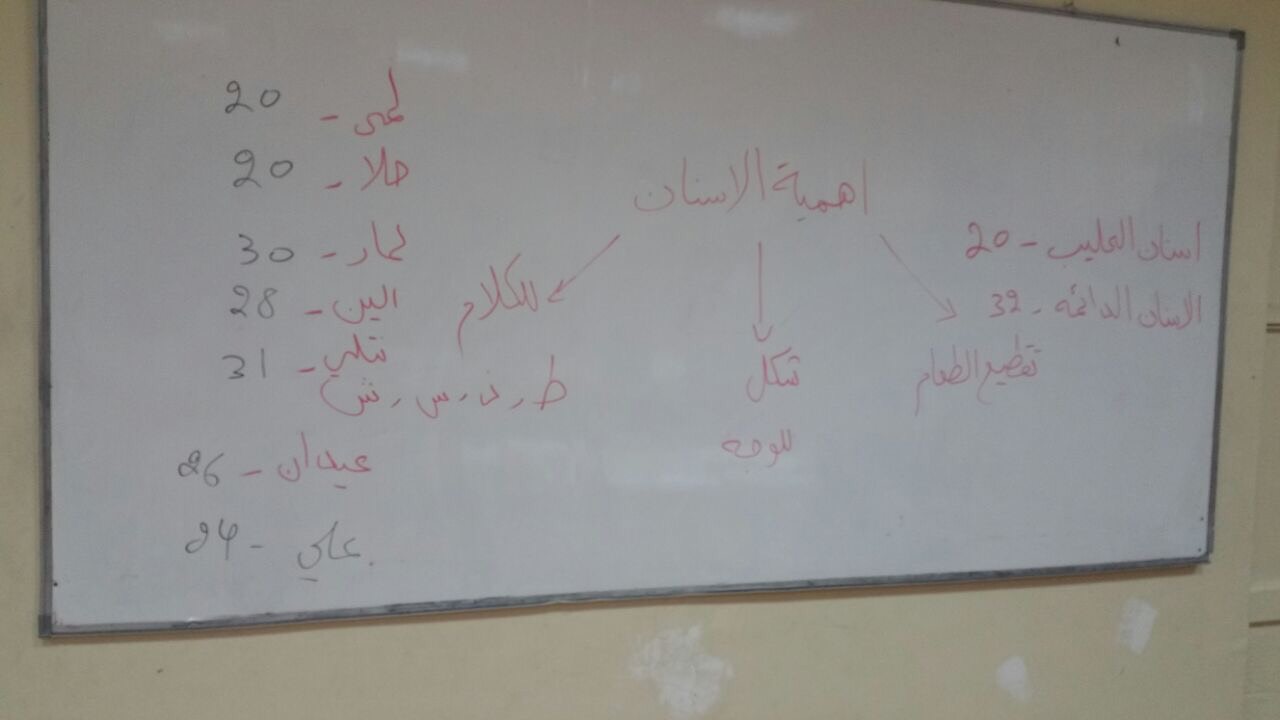 اهمية الاسنان
اسنان الحليب - 20
الاسنان الدائمه - 32
تقطيع الطعام
شكل
للوجه
للكلام
ط ر ذ ر س ر ش
لمى - 20
حلا - 20
لمار - 30
الين - 28
- 31
عبيدان - 26
علي - 24